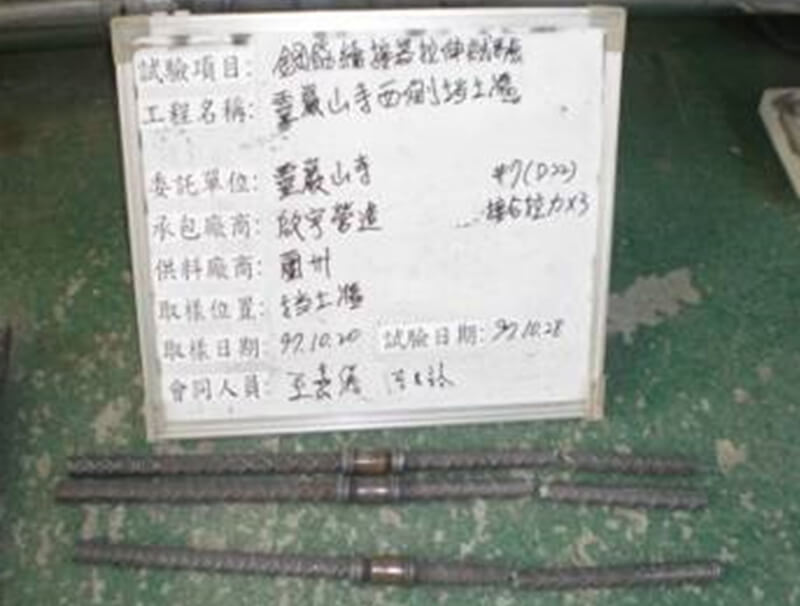 試驗項目: 鋼筋續接器拉伸試驗
工程名稱: 靈巖山寺西側擋土牆
委託單位: 靈巖山寺 #7(D22)
承包廠商: 啟宇營造 接合拉力×3
供料廠商: 蘭州
取樣位置: 擋土牆
取樣日期: 97.10.20 試驗日期: 97.10.28
會同人員: